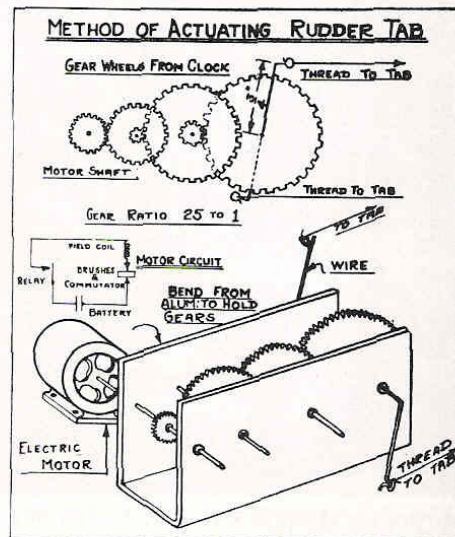 METHOD OF ACTUATING RUDDER TAB
GEAR WHEELS FROM CLOCK
THREAD TO TAB
MOTOR SHAFT
THREAD TO TAB
GEAR RATIO 25 TO 1
FIELD COIL
MOTOR CIRCUIT
BRUSHES
&
COMMUTATOR
RELAY
BATTERY
TO TAB
WIRE
BEND FROM
ALUM: TO HOLD
GEARS
ELECTRIC
MOTOR
THREAD
TO TAB